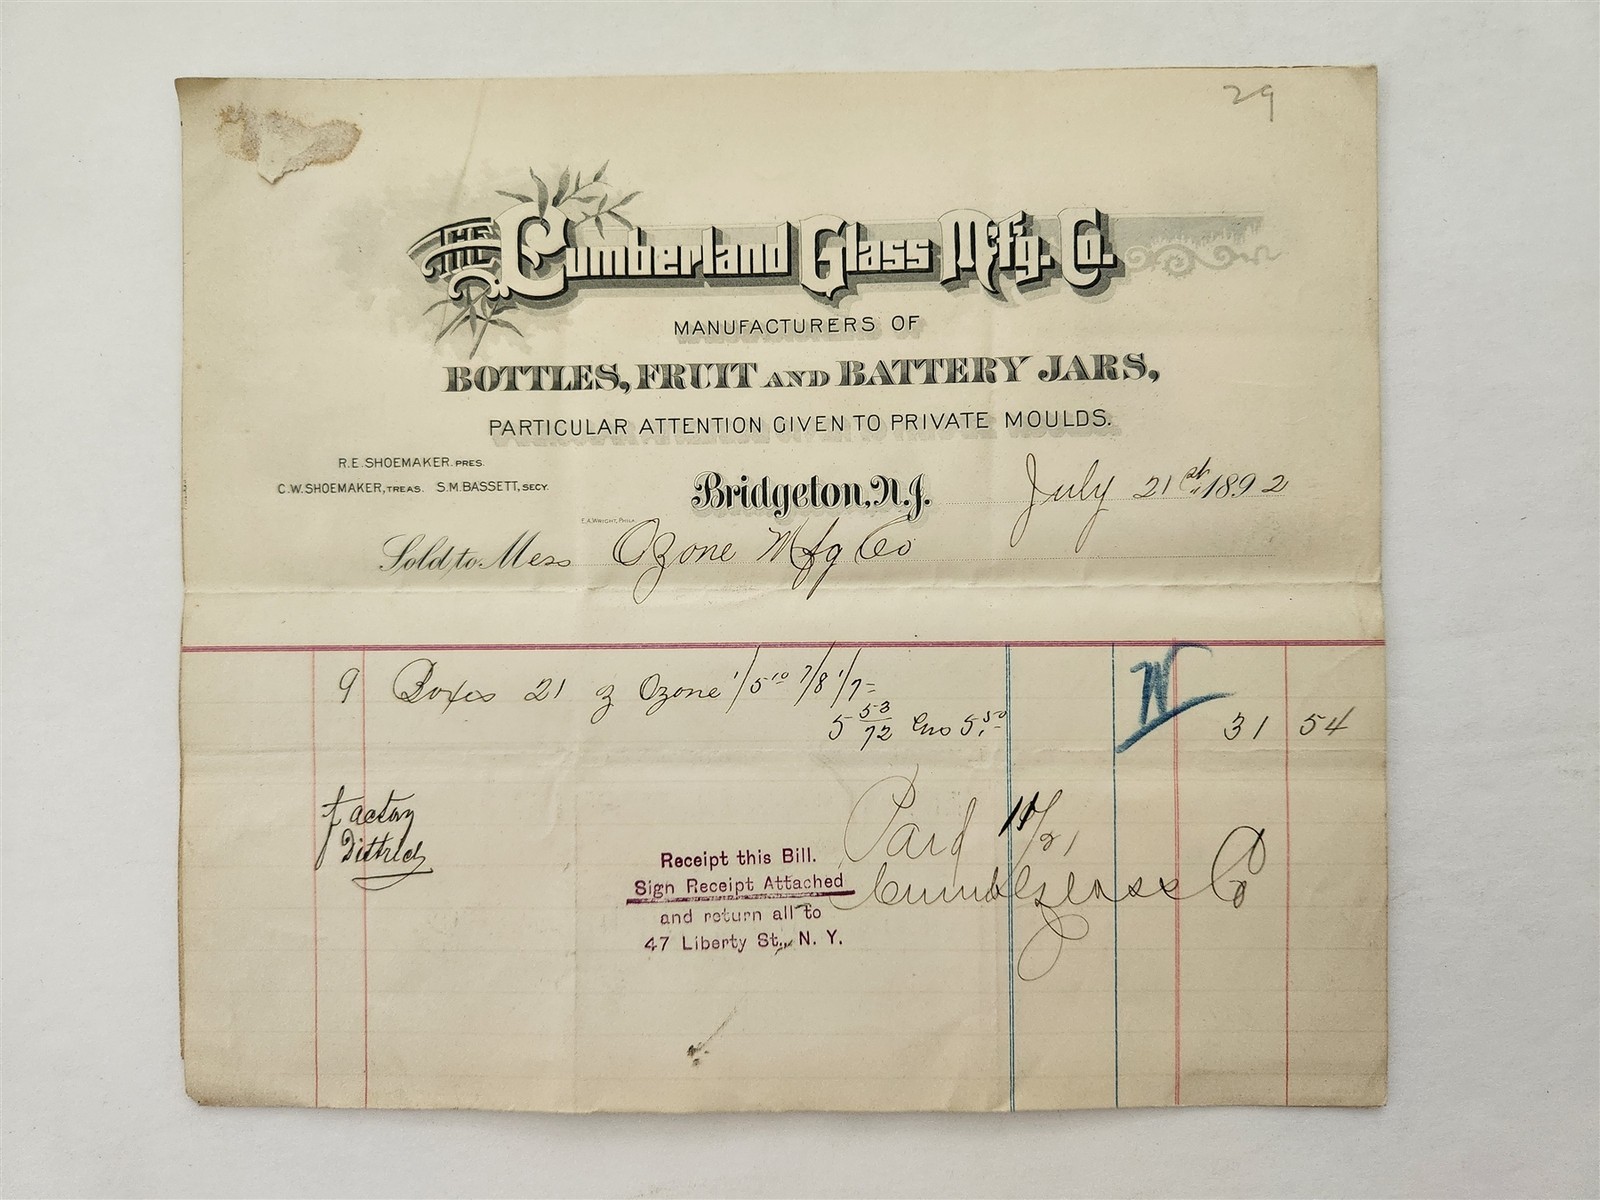 29
THE Cumberland Glass M'f'g. Co.
MANUFACTURERS OF
BOTTLES, FRUIT AND BATTERY JARS,
PARTICULAR ATTENTION GIVEN TO PRIVATE MOULDS.
R.E. SHOEMAKER. PRES.
C.W. SHOEMAKER, TREAS. S.M. BASSETT, SECY.
Bridgeton, N.J. July 21st 1892
E.A. WRIGHT, PHILA.
Sold to Mess Ozone Mfg Co
9 Boxes 21 oz Ozone 1/5 10 7/8 1/7 =
5 53/72 Gro 5.50 31 54
Factory
District
Paid 10/21
Receipt this Bill.
Sign Receipt Attached
and return all to
47 Liberty St., N. Y.